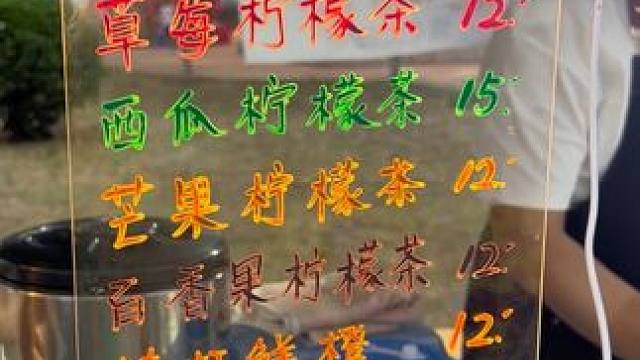 草莓柠檬茶 12.-
西瓜柠檬茶 15.-
芒果柠檬茶 12.-
百香果柠檬茶 12.-
鲜橙 12.-